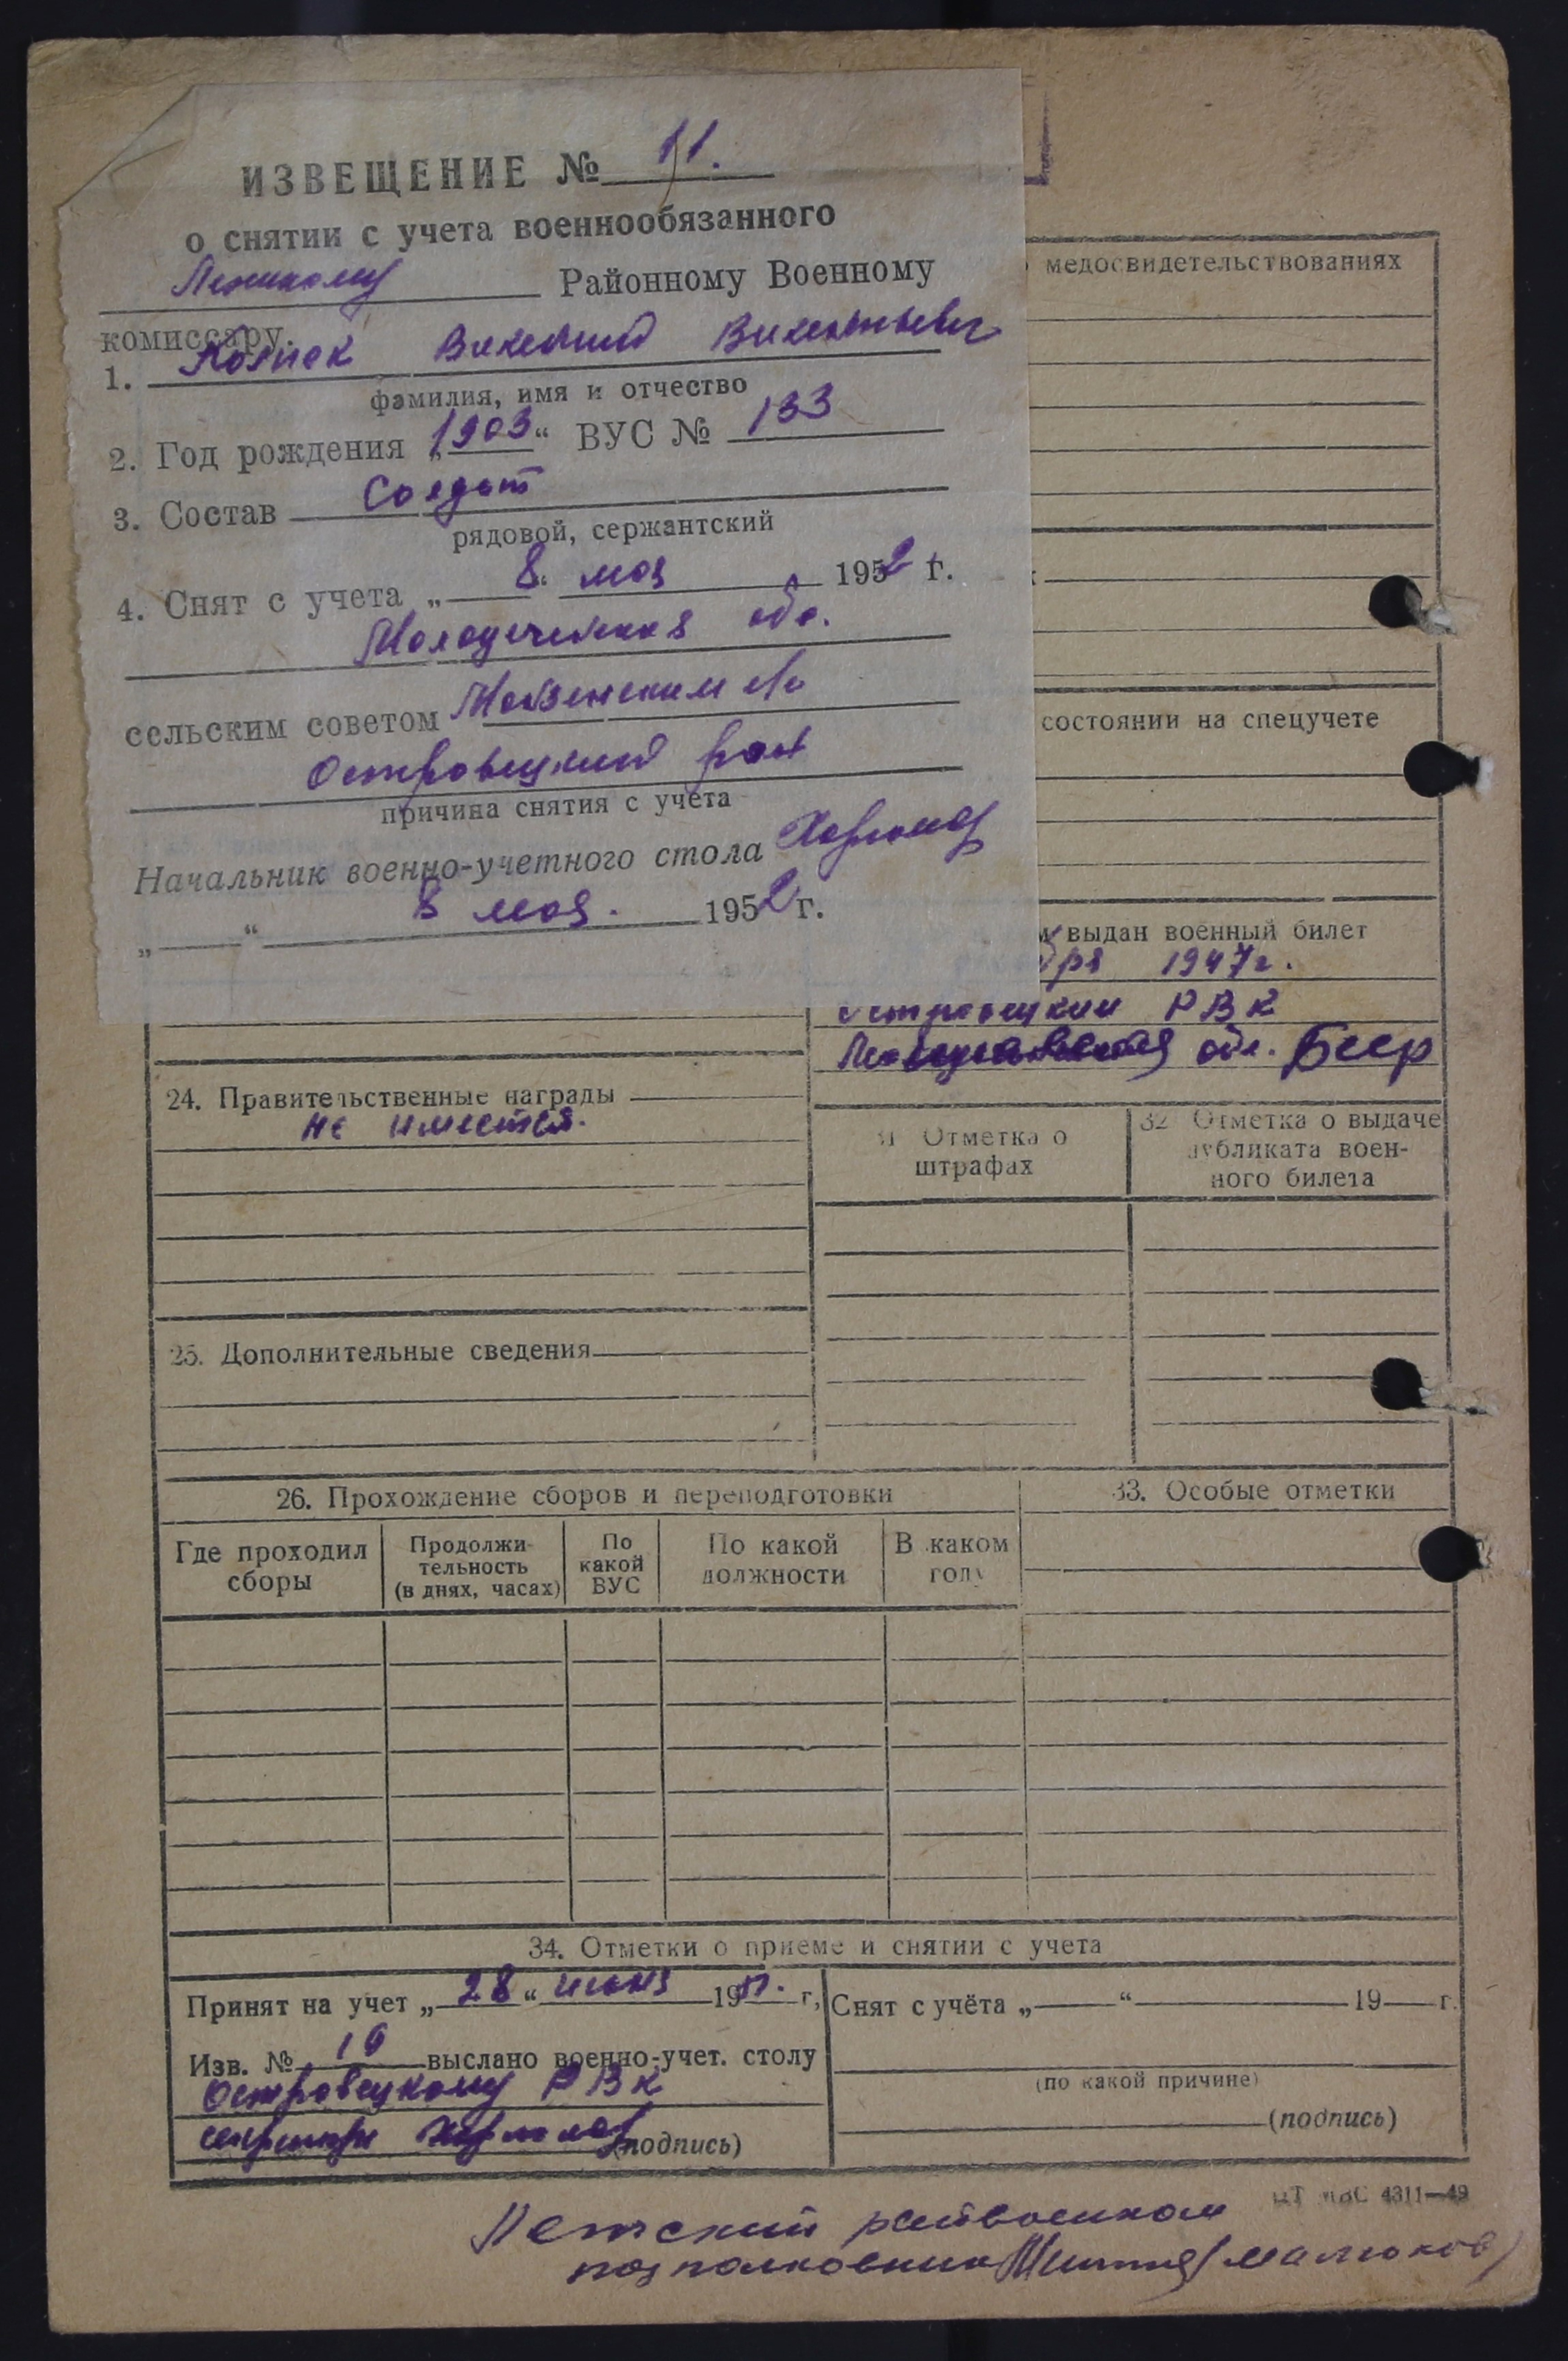 ИЗВЕЩЕНИЕ № 11.
о снятии с учета военнообязанного
Районному Военному
комиссару.
1. Викентий Викентьевич
фамилия, имя и отчество
2. Год рождения „1903“ ВУС № 133
3. Состав Солдат
рядовой, сержантский
4. Снят с учета „8“ мая 1952 г.
Молодечненская обл.
сельским советом
Островецкий район
причина снятия с учета
Начальник военно-учетного стола
„ “ 8 мая. 1952 г.
медосвидетельствованиях
состоянии на спецучете
выдан военный билет
бря 1947 г.
Островецким РВК
обл. Бсср
24. Правительственные награды
не имеется.
31 Отметка о
штрафах
32 Отметка о выдаче
дубликата воен-
ного билета
25. Дополнительные сведения
26. Прохождение сборов и переподготовки
33. Особые отметки
Где проходил
сборы
Продолжи-
тельность
(в днях, часах)
По
какой
ВУС
По какой
должности
В каком
году
34. Отметки о приеме и снятии с учета
Принят на учет „28“ июня 1951. г.
Снят с учёта „ “ 19 г.
Изв. № 19 выслано военно-учет. столу
Островецкому РВК
(по какой причине)
секретарь (подпись)
(подпись)
4311—49
райвоенком
подполковник (Малюков)